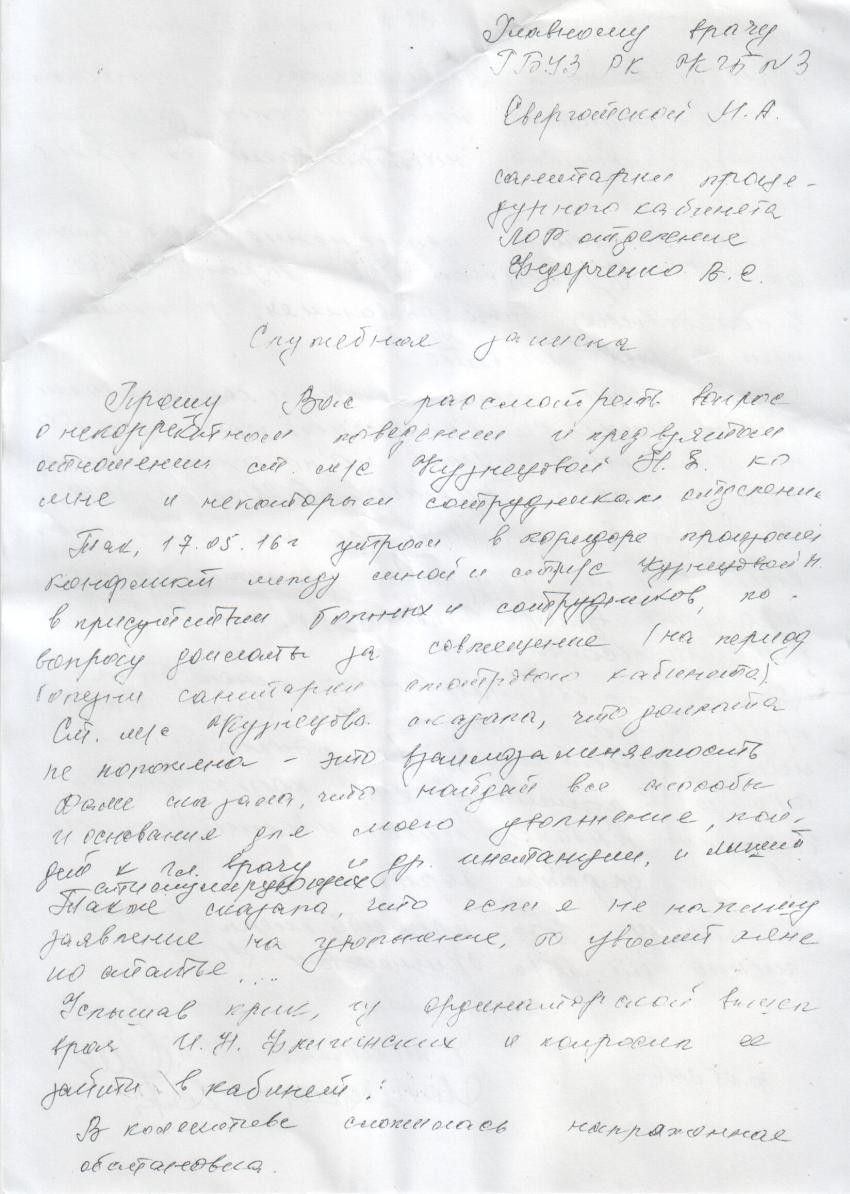 Главному врачу
ГБУЗ РК КГБ №3
санитарки проце-
дурного кабинета
ЛОР отделение
Федорченко В. С.
Служебная записка
Прошу Вас рассмотреть вопрос
о некорректном поведении и предвзятом
отношении ст. м/с Кузнецовой Н. В. ко
мне и некоторым сотрудникам отделения
Так, 17.05.16г утром в коридоре произошёл
конфликт между мной и ст. м/с Кузнецовой Н.
в присутствии больных и сотрудников, по
вопросу доплаты за совмещение (на период
болезни санитарки смотрового кабинета).
Ст. м/с Кузнецова сказала, что доплата
не положена – это взаимозаменяемость
Даже сказала, что найдёт все способы
и основания для моего увольнение, пой-
дёт к гл. врачу и др. инстанции, и лишит
стимулирующих
Также сказала, что если я не напишу
заявление на увольнение, то уволит меня
по статье...
Услышав крик, из ординаторской вышел
врач И. Н. и попросил ее
зайти в кабинет.
В коллективе сложилась напряжонная
обстановка.